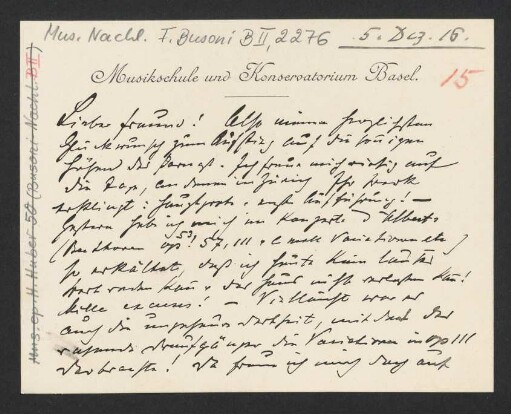 Mus. Nachl. F. Busoni B II, 2276
5. Dez. 16.
Mus. ep. H. Huber 58 (Busoni-Nachl. B II)
Musikschule und Konservatorium Basel.
15
Lieber Freund! Also meinen herzlichsten
Glückwunsch zum Aufstieg auf die
Höhen des Parnass. Ich freue mich riesig auf
die Tage, an denen in Zürich Ihr Werk
erklingt: Hauptprobe + erste Aufführung! —
Gestern hab ich mich im Konzerte d'Alberts
(Beethoven op: 53, 57, 111 + c moll Variationen etc)
so erkältet, daß ich heute kein lautes
Wort reden kann + das Haus nicht verlassen kann!
Mille excuses! — Vielleicht war es
auch die ungeheure Derbheit, mit der der
rasende Draufgänger die Variationen in op 111
! Da freue ich mich doch auf